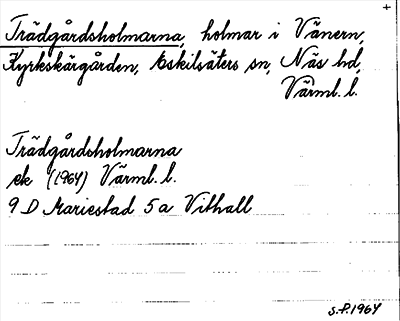 +
Trädgårdsholmarna, holmar i Vänern,
Kyrkskärgården, Eskilsäters sn, Näs hd,
Värml. l.
Trädgårdsholmarna
ek (1964) Värml. l.
9 D Mariestad 5a Vithall
S.P. 1964